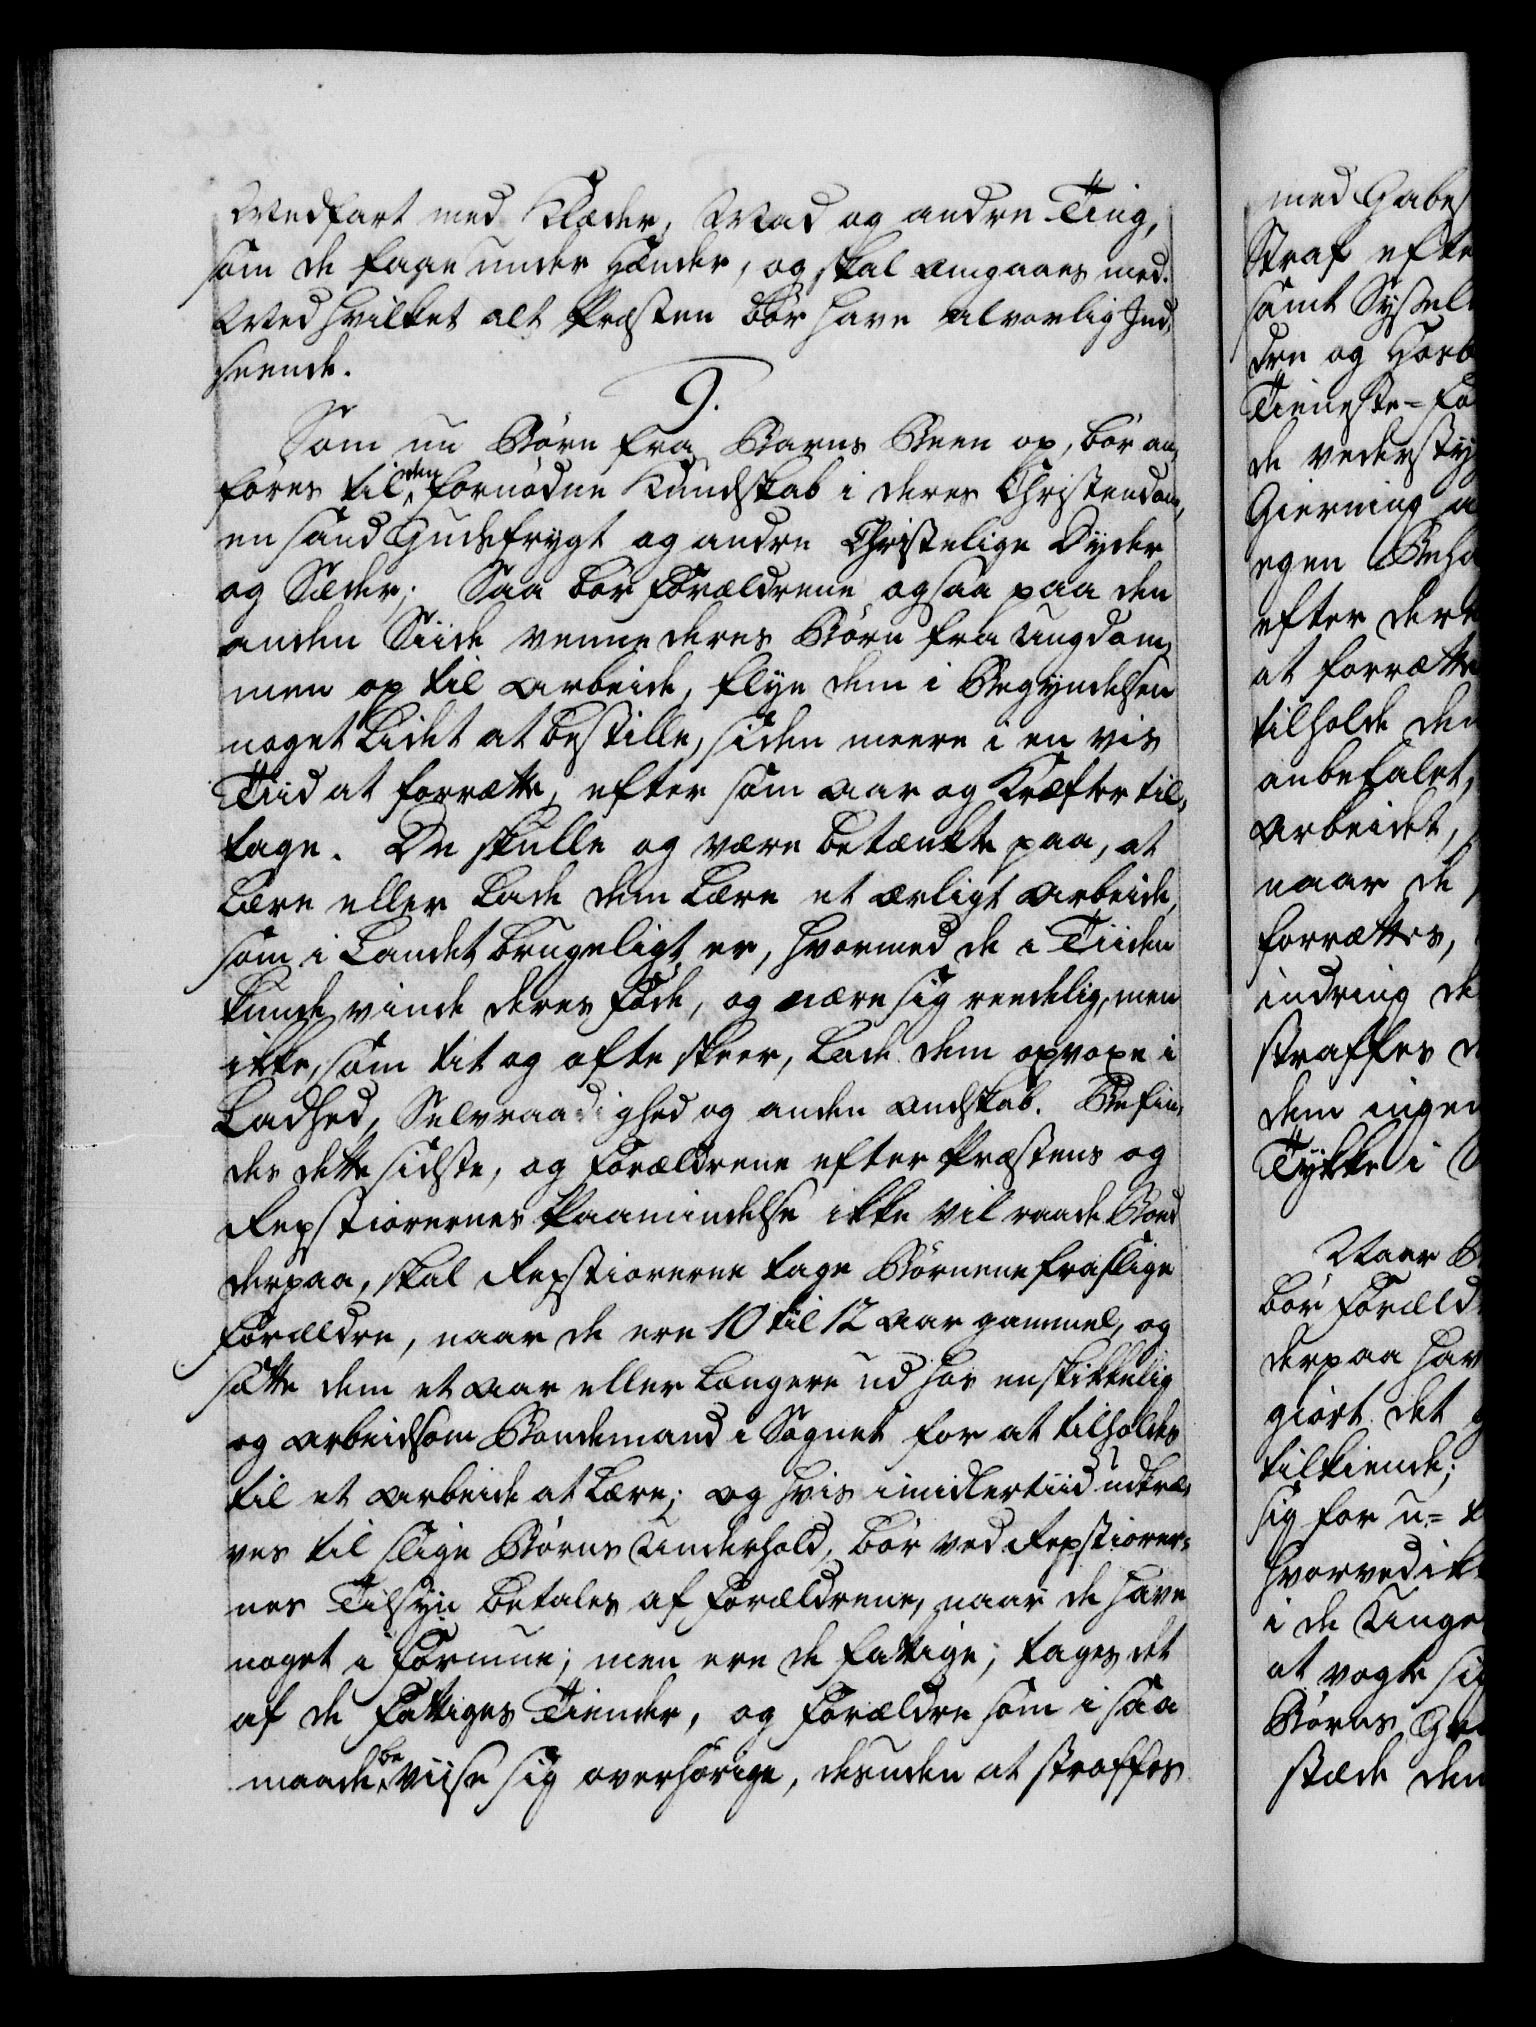 Medfart med Klæder, Mad og andre Ting,
som de faae under Hænder, og skal omgaaes med.
Med hvilket alt Præsten bör have alvorlig Ind,
seende.
9.
Som nu Börn fra Barns Been op, bör an,
föres til den fornödne Kundskab i deres Christendom,
en sand Gudsfrygt og andre Christelige Dyder
og Sæder; Saa bör Forældrene ogsaa paa den
anden Siide venne deres Börn fra Ungdom,
men op til Arbeide, flye dem i Begyndelsen
noget Lidet at bestille, siden meere i en vis
Tiid at forrætte, efter som Aar og Kræfter til,
tage. De skulle og være betænkte paa, at
Lære eller Lade dem Lære et ærligt Arbeide,
som i Landet brugeligt er, hvormed de i Tiiden
kunde vinde deres Föde, og nære sig reedelig, men
ikke, som tit og ofte skeer, Lade dem opvoxe i
Ladhed, Selvraadighed og anden Ondskab. Befin,
des dette sidste, og Forældrene efter Præstens og
Repstiorernes Paamindelse ikke vil raade Boed
derpaa, skal Repstiorerne tage Börnene fra slige
Forældre, naar de ere 10 til 12 Aar gammel, og
sætte dem et Aar eller Længere ud hos en skikkelig
og Arbeidsom Bondemand i Sognet for at tilholdes
til et Arbeide at Lære; og hvis imidlertiid udkræ,
ves til slige Börns Underhold, bör ved Repstiorer=
nes Tilsyn betales af Forældrene, naar de have
noget i Formue; men ere de fattige; tages det
af de Fattiges Tiender, og Forældre som i saa
maade beviise sig overhörige, desuden at straffes
med Gabes
Straf efte
samt Syssel
dre og Horb
Tieneste=Fo
de vedersty
Gierning a
egen Beho
efter dere
at forrætte
tilholde dem
anbefalet,
Arbeidet,
naar de
forrættes,
indring de
straffes
dem ingen
Tykke i
Naar B
bör Foræld
derpaa hav
giort det
tilkiende;
sig for u=
hvorved ik
i de Unge
at vogte sig
Börns
stæde dem